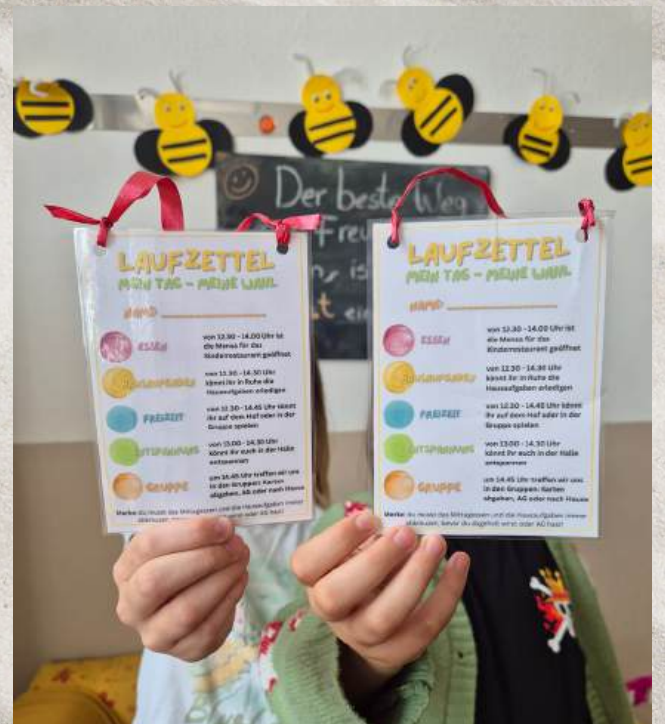 Der beste Weg
LAUFZETTEL
MEIN TAG - MEINE WAHL
NAME
ESSEN
von 12.30 - 14.00 Uhr ist
die Mensa für das
Kinderrestaurant geöffnet
HAUSAUFGABEN
von 12.30 - 14.30 Uhr
könnt ihr in Ruhe die
Hausaufgaben erledigen
FREIZEIT
von 12.30 - 14.45 Uhr könnt
ihr auf dem Hof oder in der
Gruppe spielen
ENTSPANNUNG
von 13.00 - 14.30 Uhr
könnt ihr euch in der Halle
entspannen
GRUPPE
um 14.45 Uhr treffen wir uns
in den Gruppen: Karten
abgeben, AG oder nach Hause
Merke: du musst das Mittagessen und die Hausaufgaben immer
abkreuzen, wirst oder AG hast!
LAUFZETTEL
MEIN TAG - MEINE WAHL
NAME
ESSEN
von 12.30 - 14.00 Uhr ist
die Mensa für das
Kinderrestaurant geöffnet
HAUSAUFGABEN
von 12.30 - 14.30 Uhr
könnt ihr in Ruhe die
Hausaufgaben erledigen
FREIZEIT
von 12.30 - 14.45 Uhr könnt
ihr auf dem Hof oder in der
Gruppe spielen
ENTSPANNUNG
von 13.00 - 14.30 Uhr
könnt ihr euch in der Halle
entspannen
GRUPPE
um 14.45 Uhr treffen wir uns
in den Gruppen: Karten
abgeben, AG oder nach Hause
Merke: du musst das Mittagessen und die Hausaufgaben immer
abkreuzen, bevor du abgeholt wirst oder AG hast!